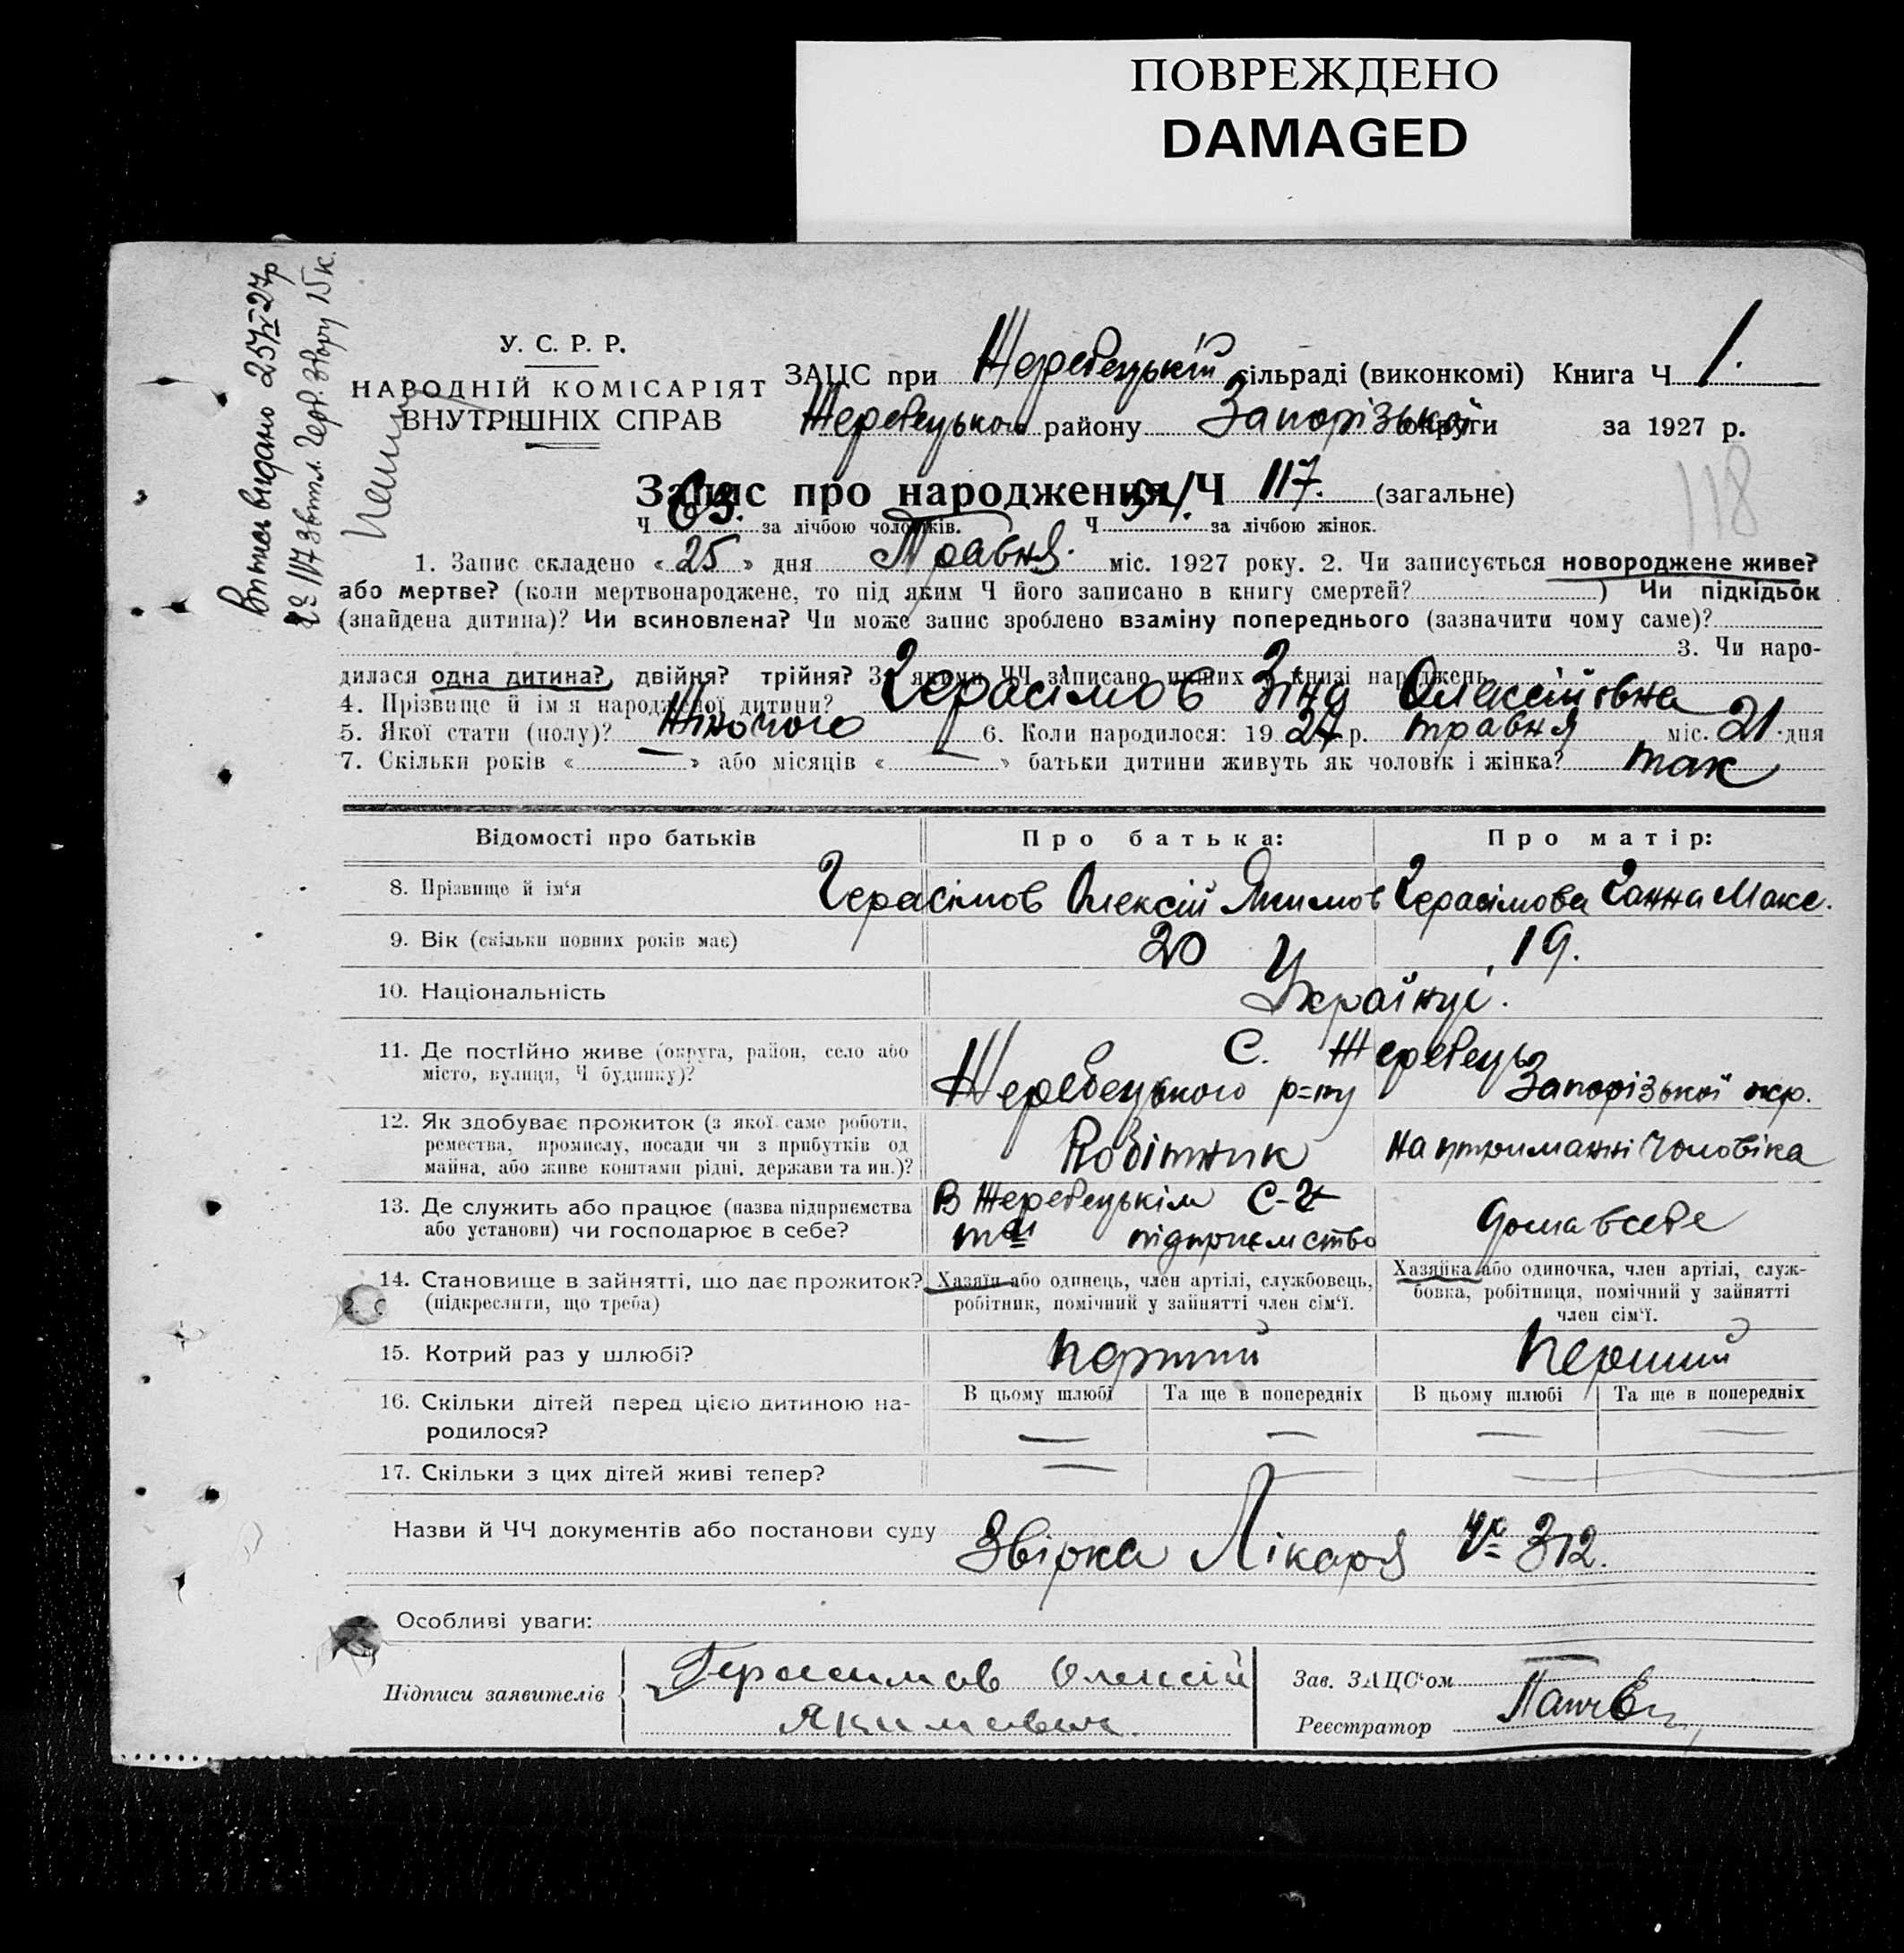 ПОВРЕЖДЕНО
DAMAGED
Витяг видано 25/V 27р
У. С. Р. Р.
НАРОДНІЙ КОМІСАРІЯТ
ВНУТРІШНІХ СПРАВ
ЗАЦС при Жеребецькій сільраді (виконкомі) Книга Ч 1.
Жеребецького району Запорізької округи за 1927 р.
118
Запис про народження Ч 117. (загальне)
Ч 63. за лічбою чоловіків. Ч 54. за лічбою жінок.
1. Запис складено «25» дня Травня. міс. 1927 року. 2. Чи записується новороджене живе?
або мертве? (коли мертвонароджене, то під яким Ч його записано в книгу смертей? ) Чи підкідьок
(знайдена дитина)? Чи всиновлена? Чи може запис зроблено взаміну попереднього (зазначити чому саме)?
3. Чи наро-
дилася одна дитина? двійня? трійня? З якими ЧЧ записано инших у книзі народжень
4. Прізвище й ім'я народженої дитини? Герасімов Зіна Олексіївна
5. Якої стати (полу)? Жіночого 6. Коли народилося: 1927 р. травня міс. 21. дня
7. Скільки років « — » або місяців « — » батьки дитини живуть як чоловік і жінка? так
Відомості про батьків Про батька: Про матір:
8. Прізвище й ім'я Герасімов Олексій Якимов Герасімова Ганна Макс.
9. Вік (скільки повних років має) 20 19.
10. Національність Українці.
11. Де постІйно живе (округа, район, село або С. Жеребець
місто, вулиця, Ч будинку)? Жеребецького р=ну Запорізької окр.
12. Як здобуває прожиток (з якої саме роботи,
ремества, промислу, посади чи з прибутків од Робітник на утриманні чоловіка
майна, або живе коштами рідні, держави та ин.)?
13. Де служить або працює (назва підприємства В Жеребецькім
або установи) чи господарює в себе? підприємство дома в себе
14. Становище в зайнятті, що дає прожиток? Хазяїн або одинець, член артілі, службовець, Хазяйка або одиночка, член артілі, служ-
(підкреслити, що треба) робітник, помічний у зайнятті член сім'ї. бовка, робітниця, помічний у зайнятті
член сім'ї.
15. Котрий раз у шлюбі? перший перший
16. Скільки дітей перед цією дитиною на- В цьому шлюбі Та ще в попередніх В цьому шлюбі Та ще в попередніх
родилося? — — — —
17. Скільки з цих дітей живі тепер? — — — —
Назви й ЧЧ документів або постанови суду
Звірка Лікаря Ч 312.
Особливі уваги:
Підписи заявителів Герасимов Олексій
Якимович.
Зав. ЗАЦС'ом
Реєстратор